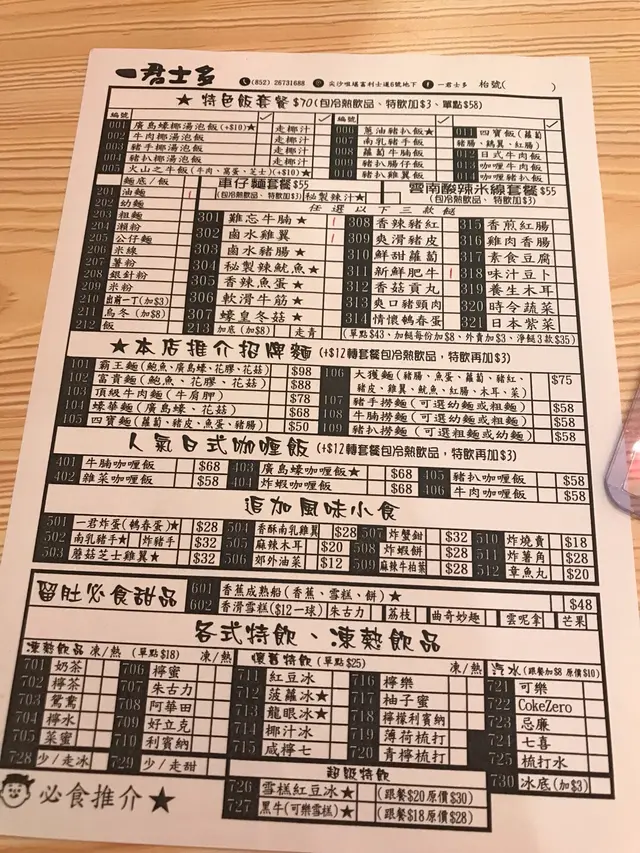 一君士多 (852) 26731688 尖沙咀堪富利士道6號地下 一君士多 枱號( )
★ 特色飯套餐 $70(包冷熱飲品、特飲加$3、單點$58)
編號 編號
001 廣島蠔椰湯泡飯(+$10)★ 走椰汁 006 蔥油豬扒飯★ 011 四寶飯(蘿蔔豬腸、雞翼、紅腸)
002 牛肉椰湯泡飯 走椰汁 007 南乳豬手飯
003 豬手椰湯泡飯 走椰汁 008 蘿蔔牛腩飯 012 日式牛肉飯
004 豬扒椰湯泡飯 走椰汁 009 豬扒腸仔飯 013 咖喱牛肉飯
005 火山之牛飯(牛肉、窩蛋、芝士)(+$10)★ 010 豬扒雞翼飯 014 咖喱豬扒飯
麵底/飯 車仔麵套餐$55 (包冷熱飲品、特飲加$3) 秘製辣汁★ 雲南酸辣米線套餐$55 (包冷熱飲品、特飲加$3)
任選以下三款餸
201 油麵
202 幼麵
203 粗麵
204 瀨粉
205 公仔麵
206 米線
207 薯粉
208 銀針粉
209 米粉
210 出前一丁(加$3)
211 烏冬(加$8)
212 飯
301 難忘牛腩★ 308 香辣豬紅 315 香煎紅腸
302 鹵水雞翼 309 爽滑豬皮 316 雞肉香腸
303 鹵水豬腸★ 310 鮮甜蘿蔔 317 素食豆腐
304 秘製辣魷魚★ 311 新鮮肥牛 318 味汁豆卜
305 香辣魚蛋★ 312 香菇貢丸 319 養生木耳
306 軟滑牛筋★ 313 爽口豬頸肉 320 時令蔬菜
307 蠔皇冬菇★ 314 情懷鵪春蛋 321 日本紫菜
213 加底(加$8) 走青 (單點$43、加餸每份加$8、外賣加$3、淨餸3款$35)
★本店推介招牌麵 (+$12轉套餐包冷熱飲品,特飲再加$3)
101 霸王麵(鮑魚、廣島蠔、花膠、花菇) $98
102 富貴麵(鮑魚、花膠、花菇) $88
103 頂級牛肉麵(牛肩胛) $78
104 蠔華麵(廣島蠔、花菇) $68
105 四寶麵(蘿蔔、豬皮、魚蛋、豬腸) $50
106 大獲麵(豬腸、魚蛋、蘿蔔、豬紅、豬皮、雞翼、魷魚、紅腸、木耳、菜) $75
107 豬手撈麵(可選幼麵或粗麵) $58
108 牛腩撈麵(可選幼麵或粗麵) $58
109 豬扒撈麵(可選粗麵或幼麵) $58
人氣日式咖喱飯 (+$12轉套餐包冷熱飲品,特飲再加$3)
401 牛腩咖喱飯 $68 403 廣島蠔咖喱飯★ $68 405 豬扒咖喱飯 $58
402 雜菜咖喱飯 $58 404 炸蝦咖喱飯 $68 406 牛肉咖喱飯 $58
追加風味小食
501 一君炸蛋(鵪春蛋)★ $28 504 香酥南乳雞翼 $28 507 炸蟹鉗 $32 510 炸燒賣 $18
502 南乳豬手★ 炸豬手 $32 505 麻辣木耳 $20 508 炸蝦餅 $28 511 炸薯角 $28
503 蘑菇芝士雞翼★ $32 506 郊外油菜 $12 509 麻辣牛柏葉 $28 512 章魚丸 $20
留肚必食甜品 601 香蕉成熟船(香蕉、雪糕、餅)★ $48
602 香滑雪糕($12一球) 朱古力 荔枝 曲奇妙趣 雲呢拿 芒果
各式特飲、凍熱飲品
凍熱飲品 凍/熱 (單點$18) 凍/熱 懷舊特飲(單點$25) 凍/熱 汽水(跟餐加$8 原價$10)
701 奶茶 706 檸蜜 711 紅豆冰 716 檸樂 721 可樂
702 檸茶 707 朱古力 712 菠蘿冰★ 717 柚子蜜 722 CokeZero
703 鴛鴦 708 阿華田 713 龍眼冰★ 718 檸檬利賓納 723 忌廉
704 檸水 709 好立克 714 椰汁冰 719 薄荷梳打 724 七喜
705 菜蜜 710 利賓納 715 咸檸七 720 青檸梳打 725 梳打水
728 少/走冰 729 少/走甜 超級特飲 730 冰底(加$3)
726 雪糕紅豆冰★ (跟餐$20原價$30)
727 黑牛(可樂雪糕)★ (跟餐$18原價$28)
必食推介★